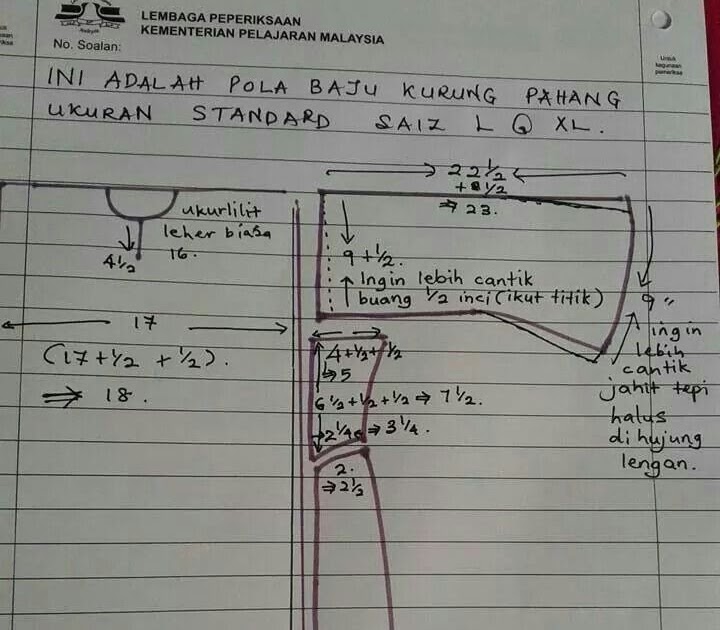 LEMBAGA PEPERIKSAAN
KEMENTERIAN PELAJARAN MALAYSIA
No. Soalan:
Untuk
kegunaan
pemeriksa
INI ADALAH POLA BAJU KURUNG PAHANG
UKURAN STANDARD SAIZ L @ XL.
22 1/2
+ 1/2
⇒ 23.
ukurlilit
leher biasa
16.
4 1/2
9 + 1/2.
Ingin lebih cantik
buang 1/2 inci (ikut titik)
9"
ingin
lebih
cantik
jahit tepi
halus
di hujung
lengan.
17
(17 + 1/2 + 1/2).
⇒ 18.
4 + 1/2 + 1/2
⇒ 5
6 1/2 + 1/2 + 1/2 ⇒ 7 1/2.
2 1/4 ⇒ 3 1/4.
2.
⇒ 2 1/2